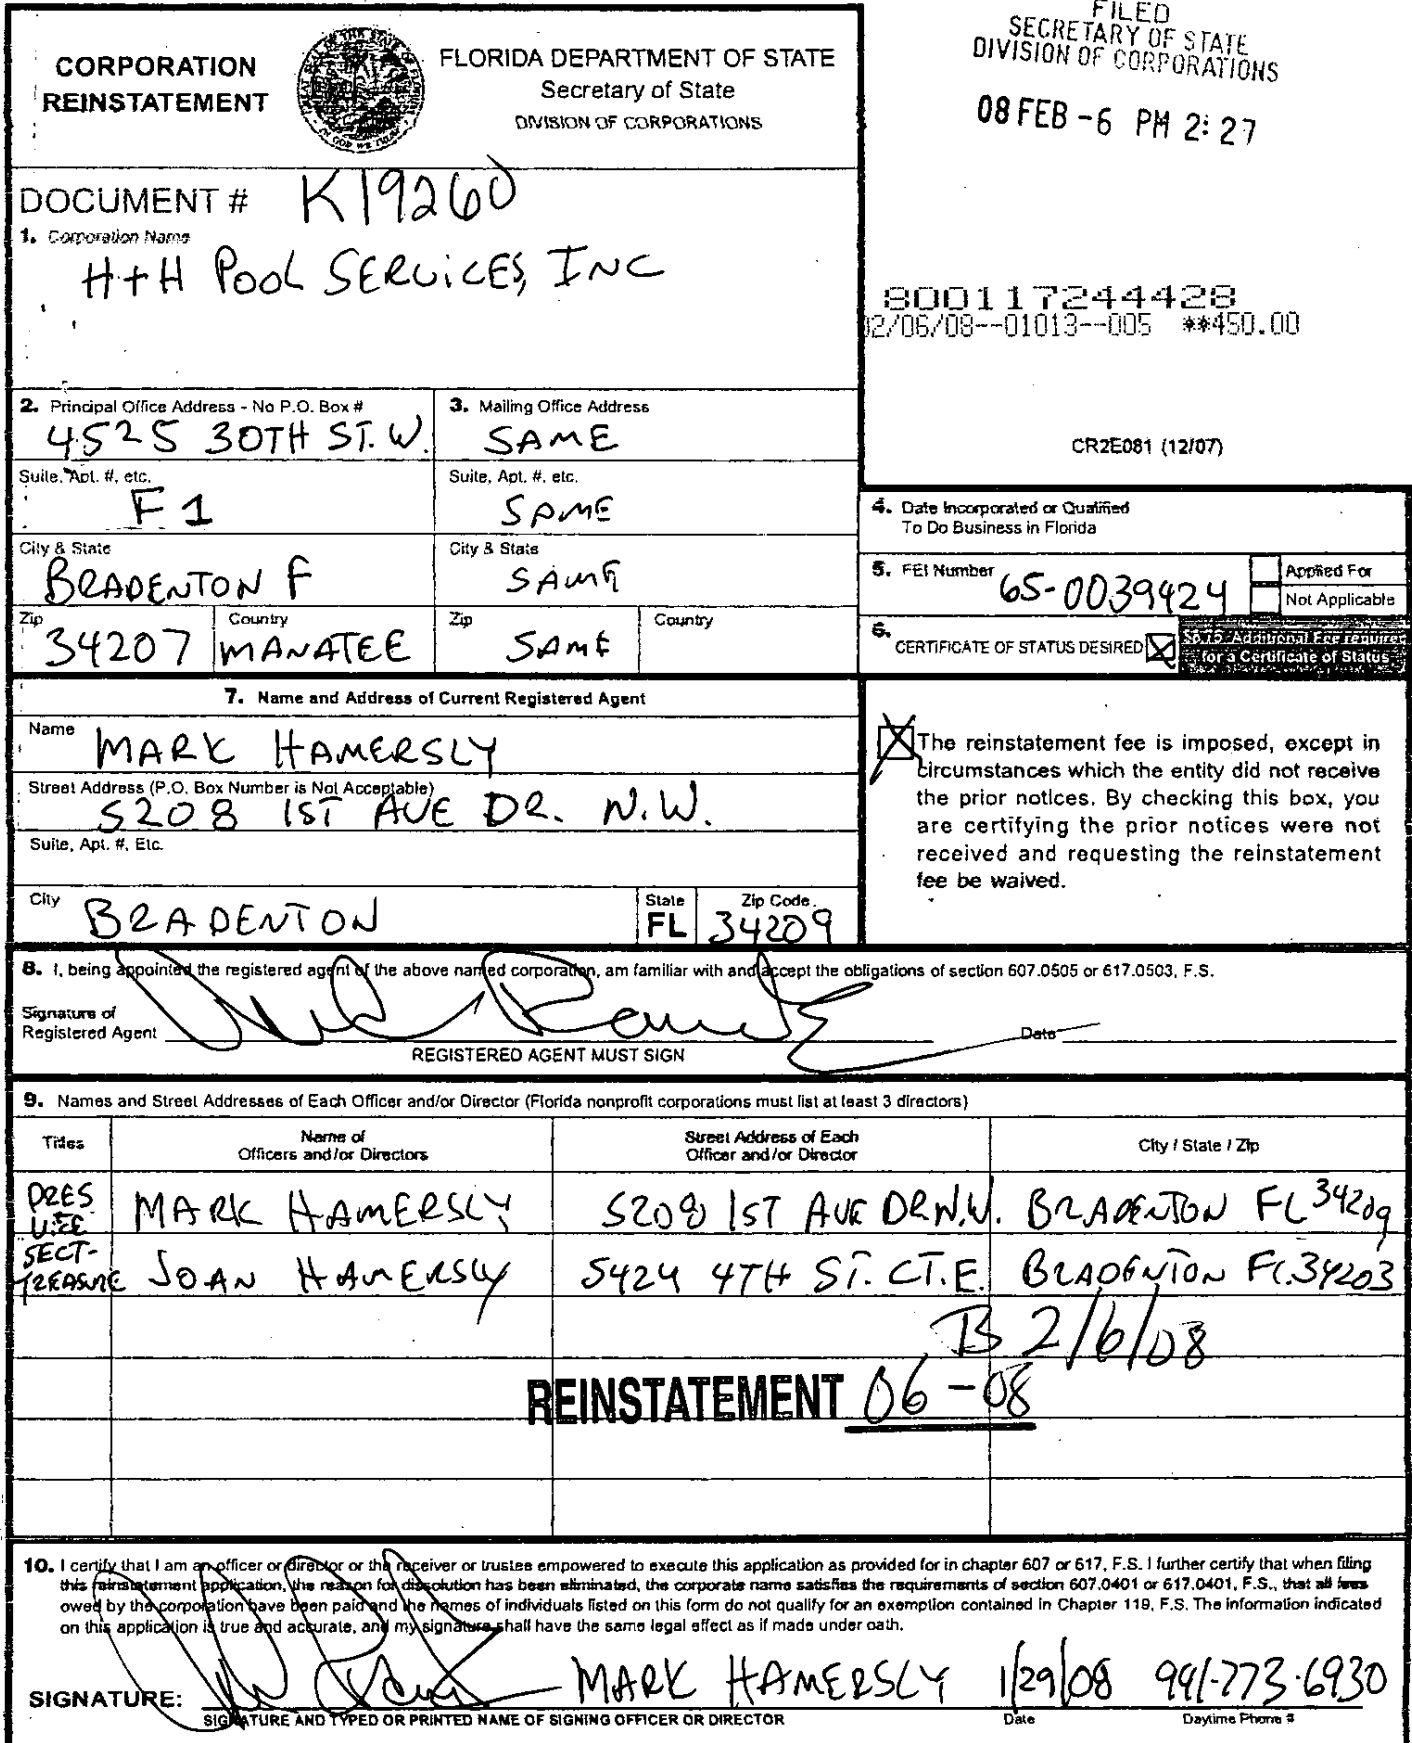 FILED
SECRETARY OF STATE
DIVISION OF CORPORATIONS
08 FEB -6 PM 2:27
CORPORATION
REINSTATEMENT
FLORIDA DEPARTMENT OF STATE
Secretary of State
DIVISION OF CORPORATIONS
DOCUMENT # K19260
1. Corporation Name
H+H POOL SERVICES, INC
800117244428
02/06/08--01013--005 **450.00
CR2E081 (12/07)
2. Principal Office Address - No P.O. Box #
4525 30TH ST. W.
3. Mailing Office Address
SAME
Suite, Apt. #, etc.
F 1
Suite, Apt. #, etc.
SAME
City & State
BRADENTON F
City & State
SAME
Zip
34207
Country
MANATEE
Zip
SAME
Country
4. Date Incorporated or Qualified
To Do Business in Florida
5. FEI Number 65-0039424
Applied For
Not Applicable
6. CERTIFICATE OF STATUS DESIRED
$8.75 Additional Fee required
for a Certificate of Status
7. Name and Address of Current Registered Agent
Name MARK HAMERSLY
Street Address (P.O. Box Number is Not Acceptable)
5208 1ST AVE DR. N.W.
Suite, Apt. #, Etc.
City BRADENTON
State
FL
Zip Code
34209
The reinstatement fee is imposed, except in
circumstances which the entity did not receive
the prior notices. By checking this box, you
are certifying the prior notices were not
received and requesting the reinstatement
fee be waived.
8. I, being appointed the registered agent of the above named corporation, am familiar with and accept the obligations of section 607.0505 or 617.0503, F.S.
Signature of
Registered Agent
Date
REGISTERED AGENT MUST SIGN
9. Names and Street Addresses of Each Officer and/or Director (Florida nonprofit corporations must list at least 3 directors)
Titles
Name of
Officers and/or Directors
Street Address of Each
Officer and/or Director
City / State / Zip
PRES
MARK HAMERSLY 5208 1ST AVE DR N.W. BRADENTON FL 34209
SECT-
TREASURE JOAN HAMERSLY 5424 4TH ST. CT. E. BRADENTON FL. 34203
B 2/6/08
REINSTATEMENT 06-08
10. I certify that I am an officer or director or the receiver or trustee empowered to execute this application as provided for in chapter 607 or 617, F.S. I further certify that when filing
this reinstatement application, the reason for dissolution has been eliminated, the corporate name satisfies the requirements of section 607.0401 or 617.0401, F.S., that all fees
owed by the corporation have been paid and the names of individuals listed on this form do not qualify for an exemption contained in Chapter 119, F.S. The information indicated
on this application is true and accurate, and my signature shall have the same legal effect as if made under oath.
SIGNATURE: MARK HAMERSLY 1/29/08 941-773-6930
SIGNATURE AND TYPED OR PRINTED NAME OF SIGNING OFFICER OR DIRECTOR
Date
Daytime Phone #